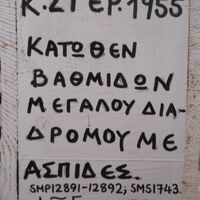 Κ.21 ΕΡ.1955
ΚΑΤΩΘΕΝ
ΒΑΘΜΙΔΩΝ
ΜΕΓΑΛΟΥ ΔΙΑ-
ΔΡΟΜΟΥ ΜΕ
ΑΣΠΙΔΕΣ.
SMP12891-12892; SMS1743.